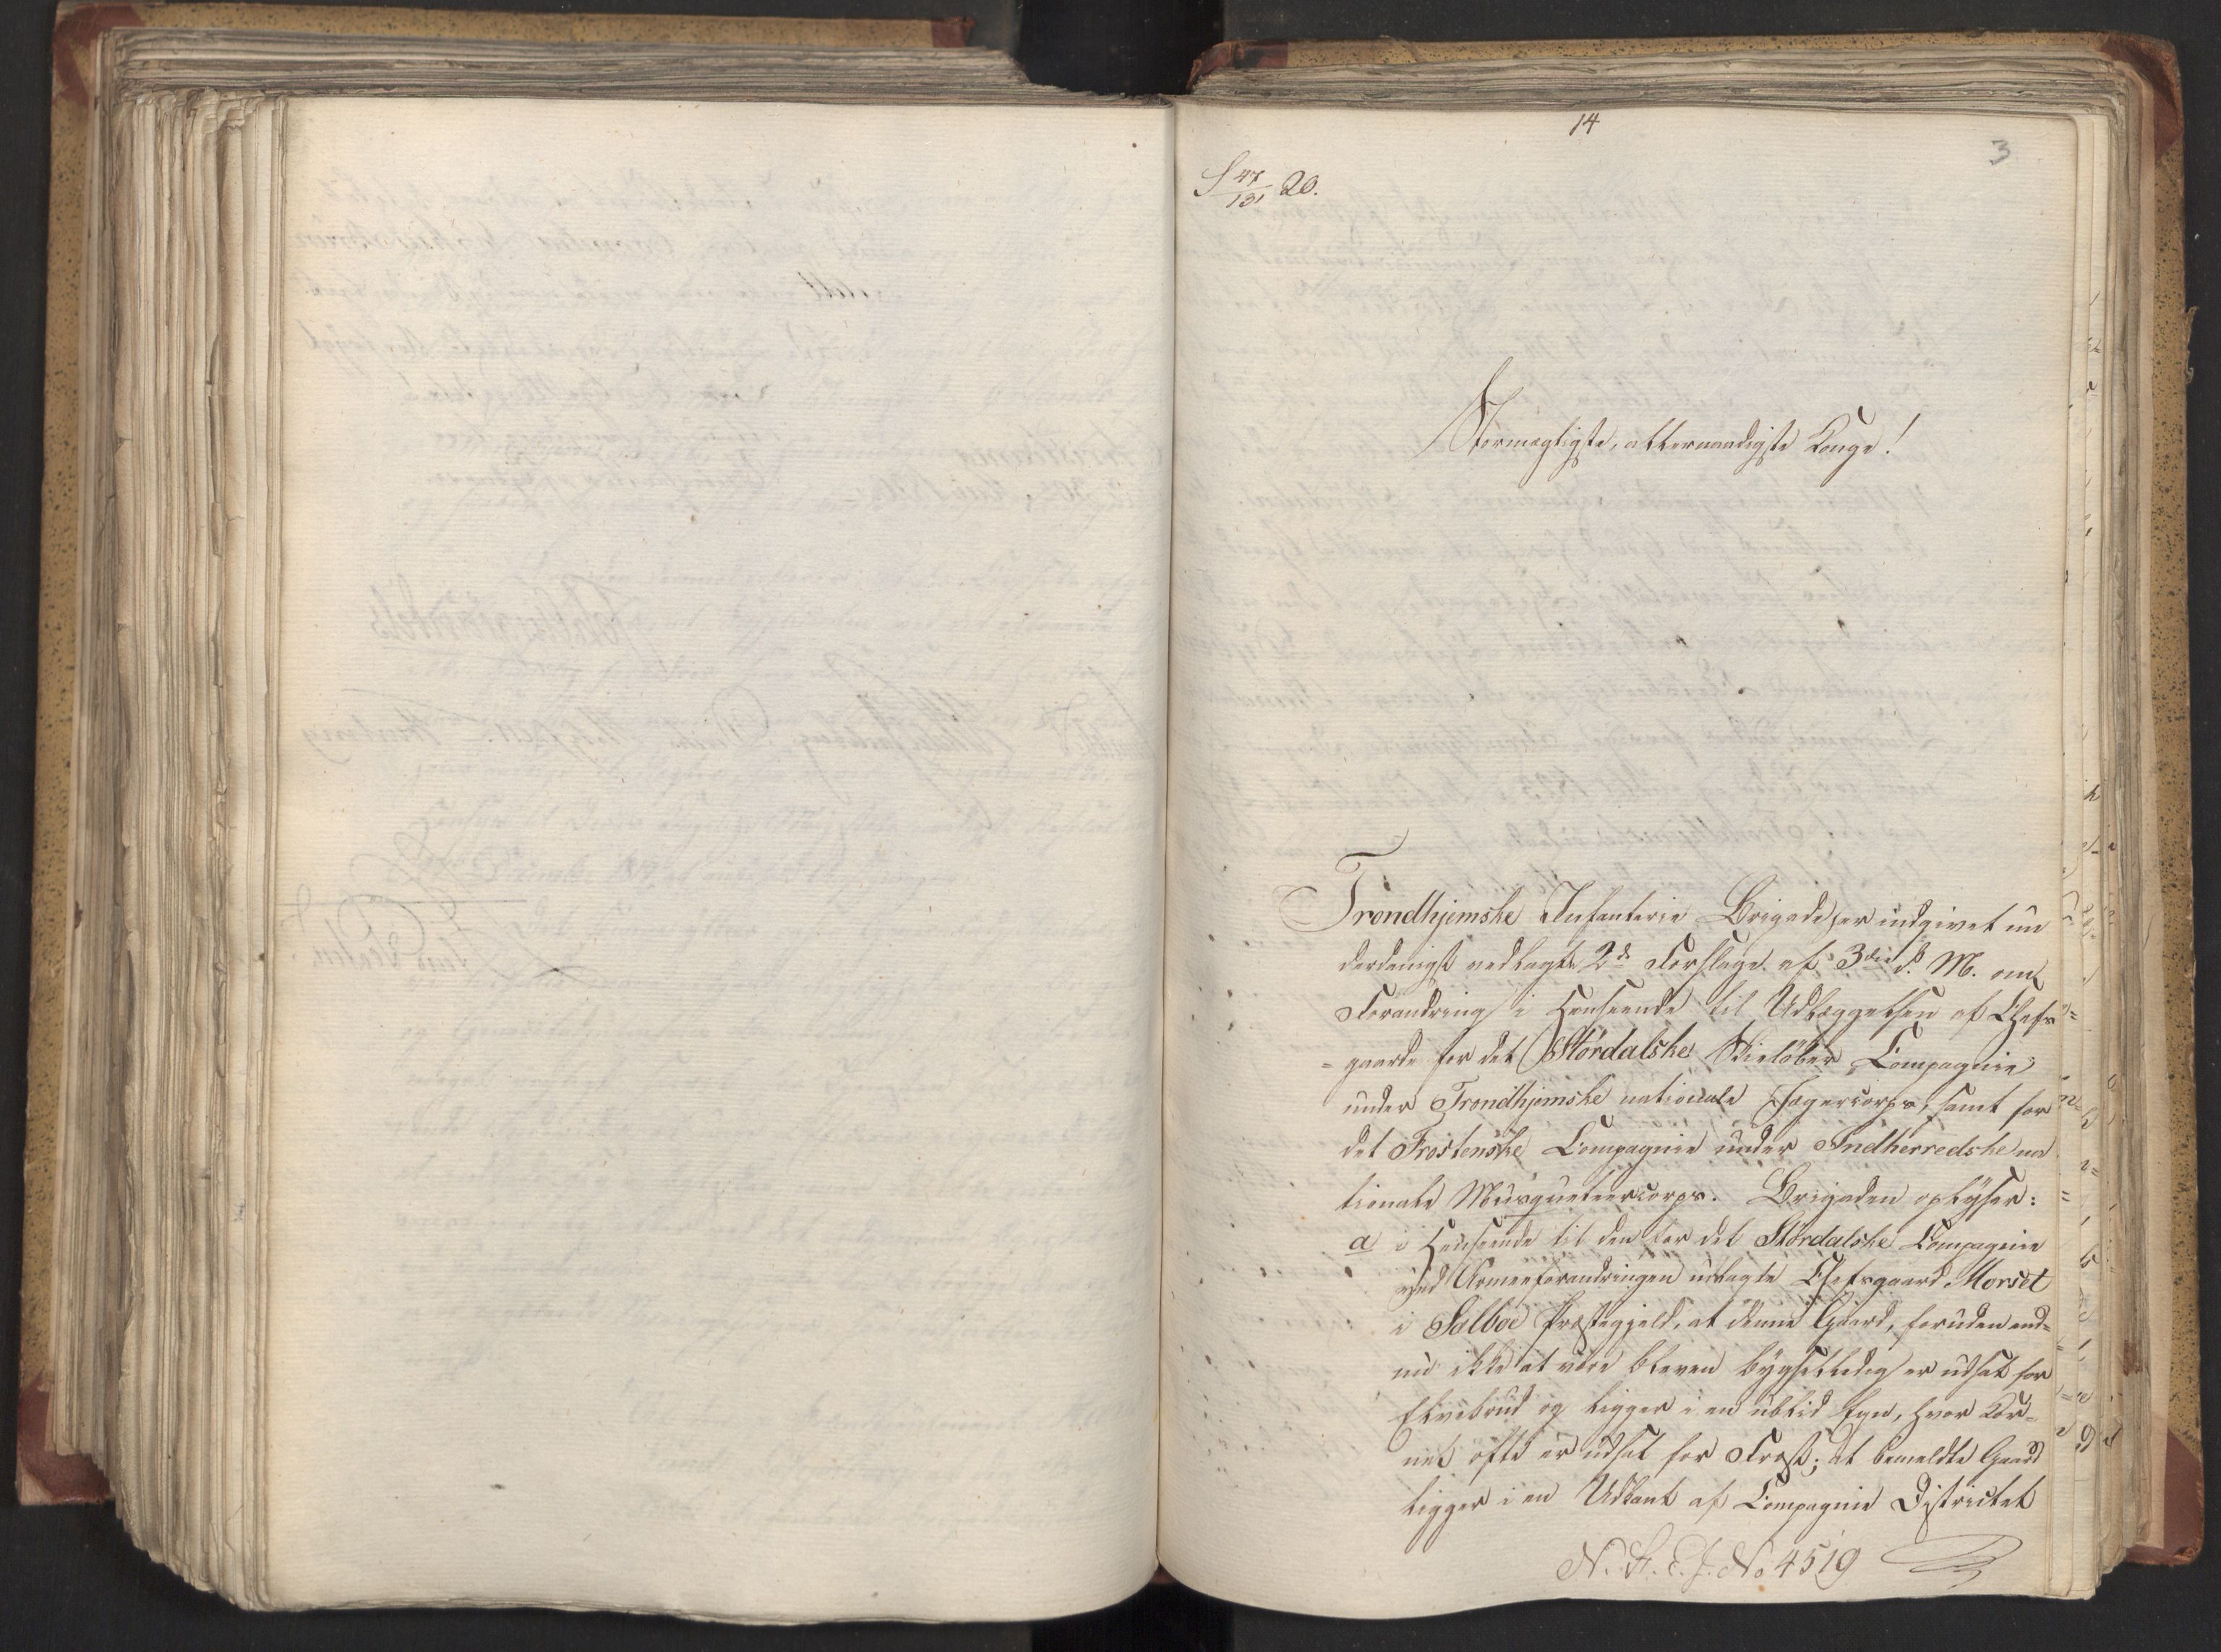 14
3
S 47/131 20.
Stormægtigste, allernaadigste Konge!
Trondhjemske Infanterie Brigade har indgivet un
derdanigst vedlagte 2de Forslage af 3die d. M. om
Forandring i Henseende til Udlæggelsen af Chefs=
=gaarde for det Stördalske Skielöber Compagnie
under Trondhjemske nationale Jægercorps, samt for
det Frostenske Compagnie under Indherredske na
tionale Musqueteercorps. Brigaden oplÿser:
a i Henseende til den for det Stördalske Compagnie
ved Armeeforandringen udlagte Chefsgaard Morset
i Sælboe Præstegjeld, at denne Gaard, foruden end=
nu ikke at være bleven bÿgselledig er udsat for
Elvebrud og ligger i en ublid Egn, hvor Kor=
net ofte er udsat for Frost; at bemeldte Gaard
ligger i en Udkant af Compagnie Districtet
N. S. E. J. No 4519